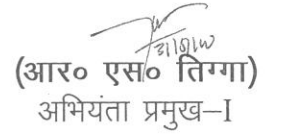 (आर० एस० तिग्गा)
अभियंता प्रमुख–I